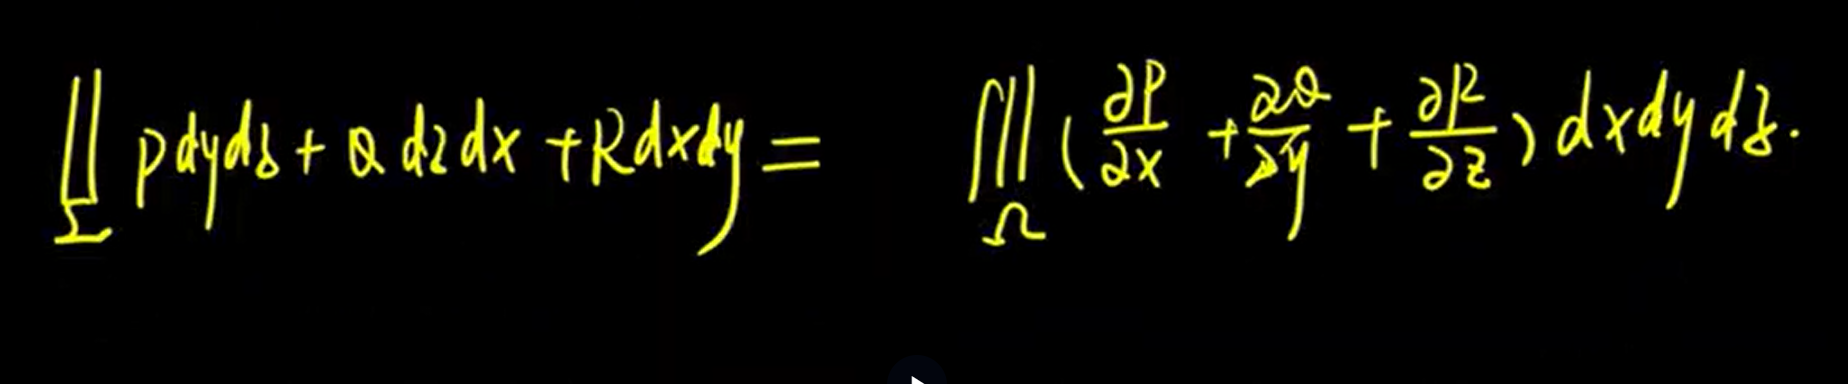 ∬_Σ Pdydz + Qdzdx + Rdxdy = ∭_Ω (∂P/∂x + ∂Q/∂y + ∂R/∂z) dxdydz.